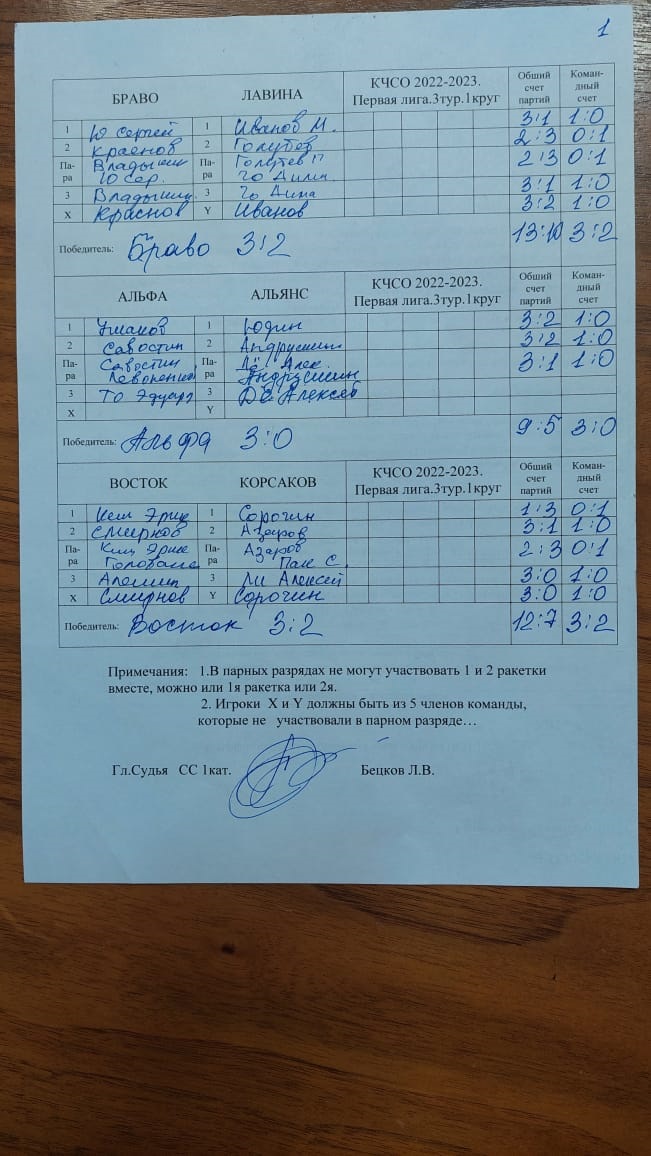 1
БРАВО ЛАВИНА КЧСО 2022-2023. Общий Коман-
Первая лига.3тур.1круг счет дный
партий счет
1 Ю Сергей 1 Иванов М. 3:1 1:0
2 Краснов 2 Голубев 2:3 0:1
Па- Владыкин Па- Голубев 2:3 0:1
ра Ю Сер. ра Чо Дима
3 Владыкин. 3 Чо Дима 3:1 1:0
X Краснов Y Иванов 3:2 1:0
Победитель: Браво 3:2 13:10 3:2
АЛЬФА АЛЬЯНС КЧСО 2022-2023. Общий Коман-
Первая лига.3тур.1круг счет дный
партий счет
1 Ушаков 1 Юдин 3:2 1:0
2 Савостин 2 Андрушкин 3:2 1:0
Па- Савостин Па- Дё Алек. 3:1 1:0
ра ра
3 То Эдуард 3 Дё Алексей
X Y
Победитель: Альфа 3:0 9:5 3:0
ВОСТОК КОРСАКОВ КЧСО 2022-2023. Общий Коман-
Первая лига.3тур.1круг счет дный
партий счет
1 Эрик 1 Сорочин 1:3 0:1
2 Смирнов 2 Азаров 3:1 1:0
Па- Эрик Па- Азаров 2:3 0:1
ра ра Пак С.
3 3 Ли Алексей 3:0 1:0
X Смирнов Y Сорочин 3:0 1:0
Победитель: Восток 3:2 12:7 3:2
Примечания: 1.В парных разрядах не могут участвовать 1 и 2 ракетки
вместе, можно или 1я ракетка или 2я.
2. Игроки X и Y должны быть из 5 членов команды,
которые не участвовали в парном разряде…
Гл.Судья СС 1кат. Бецков Л.В.